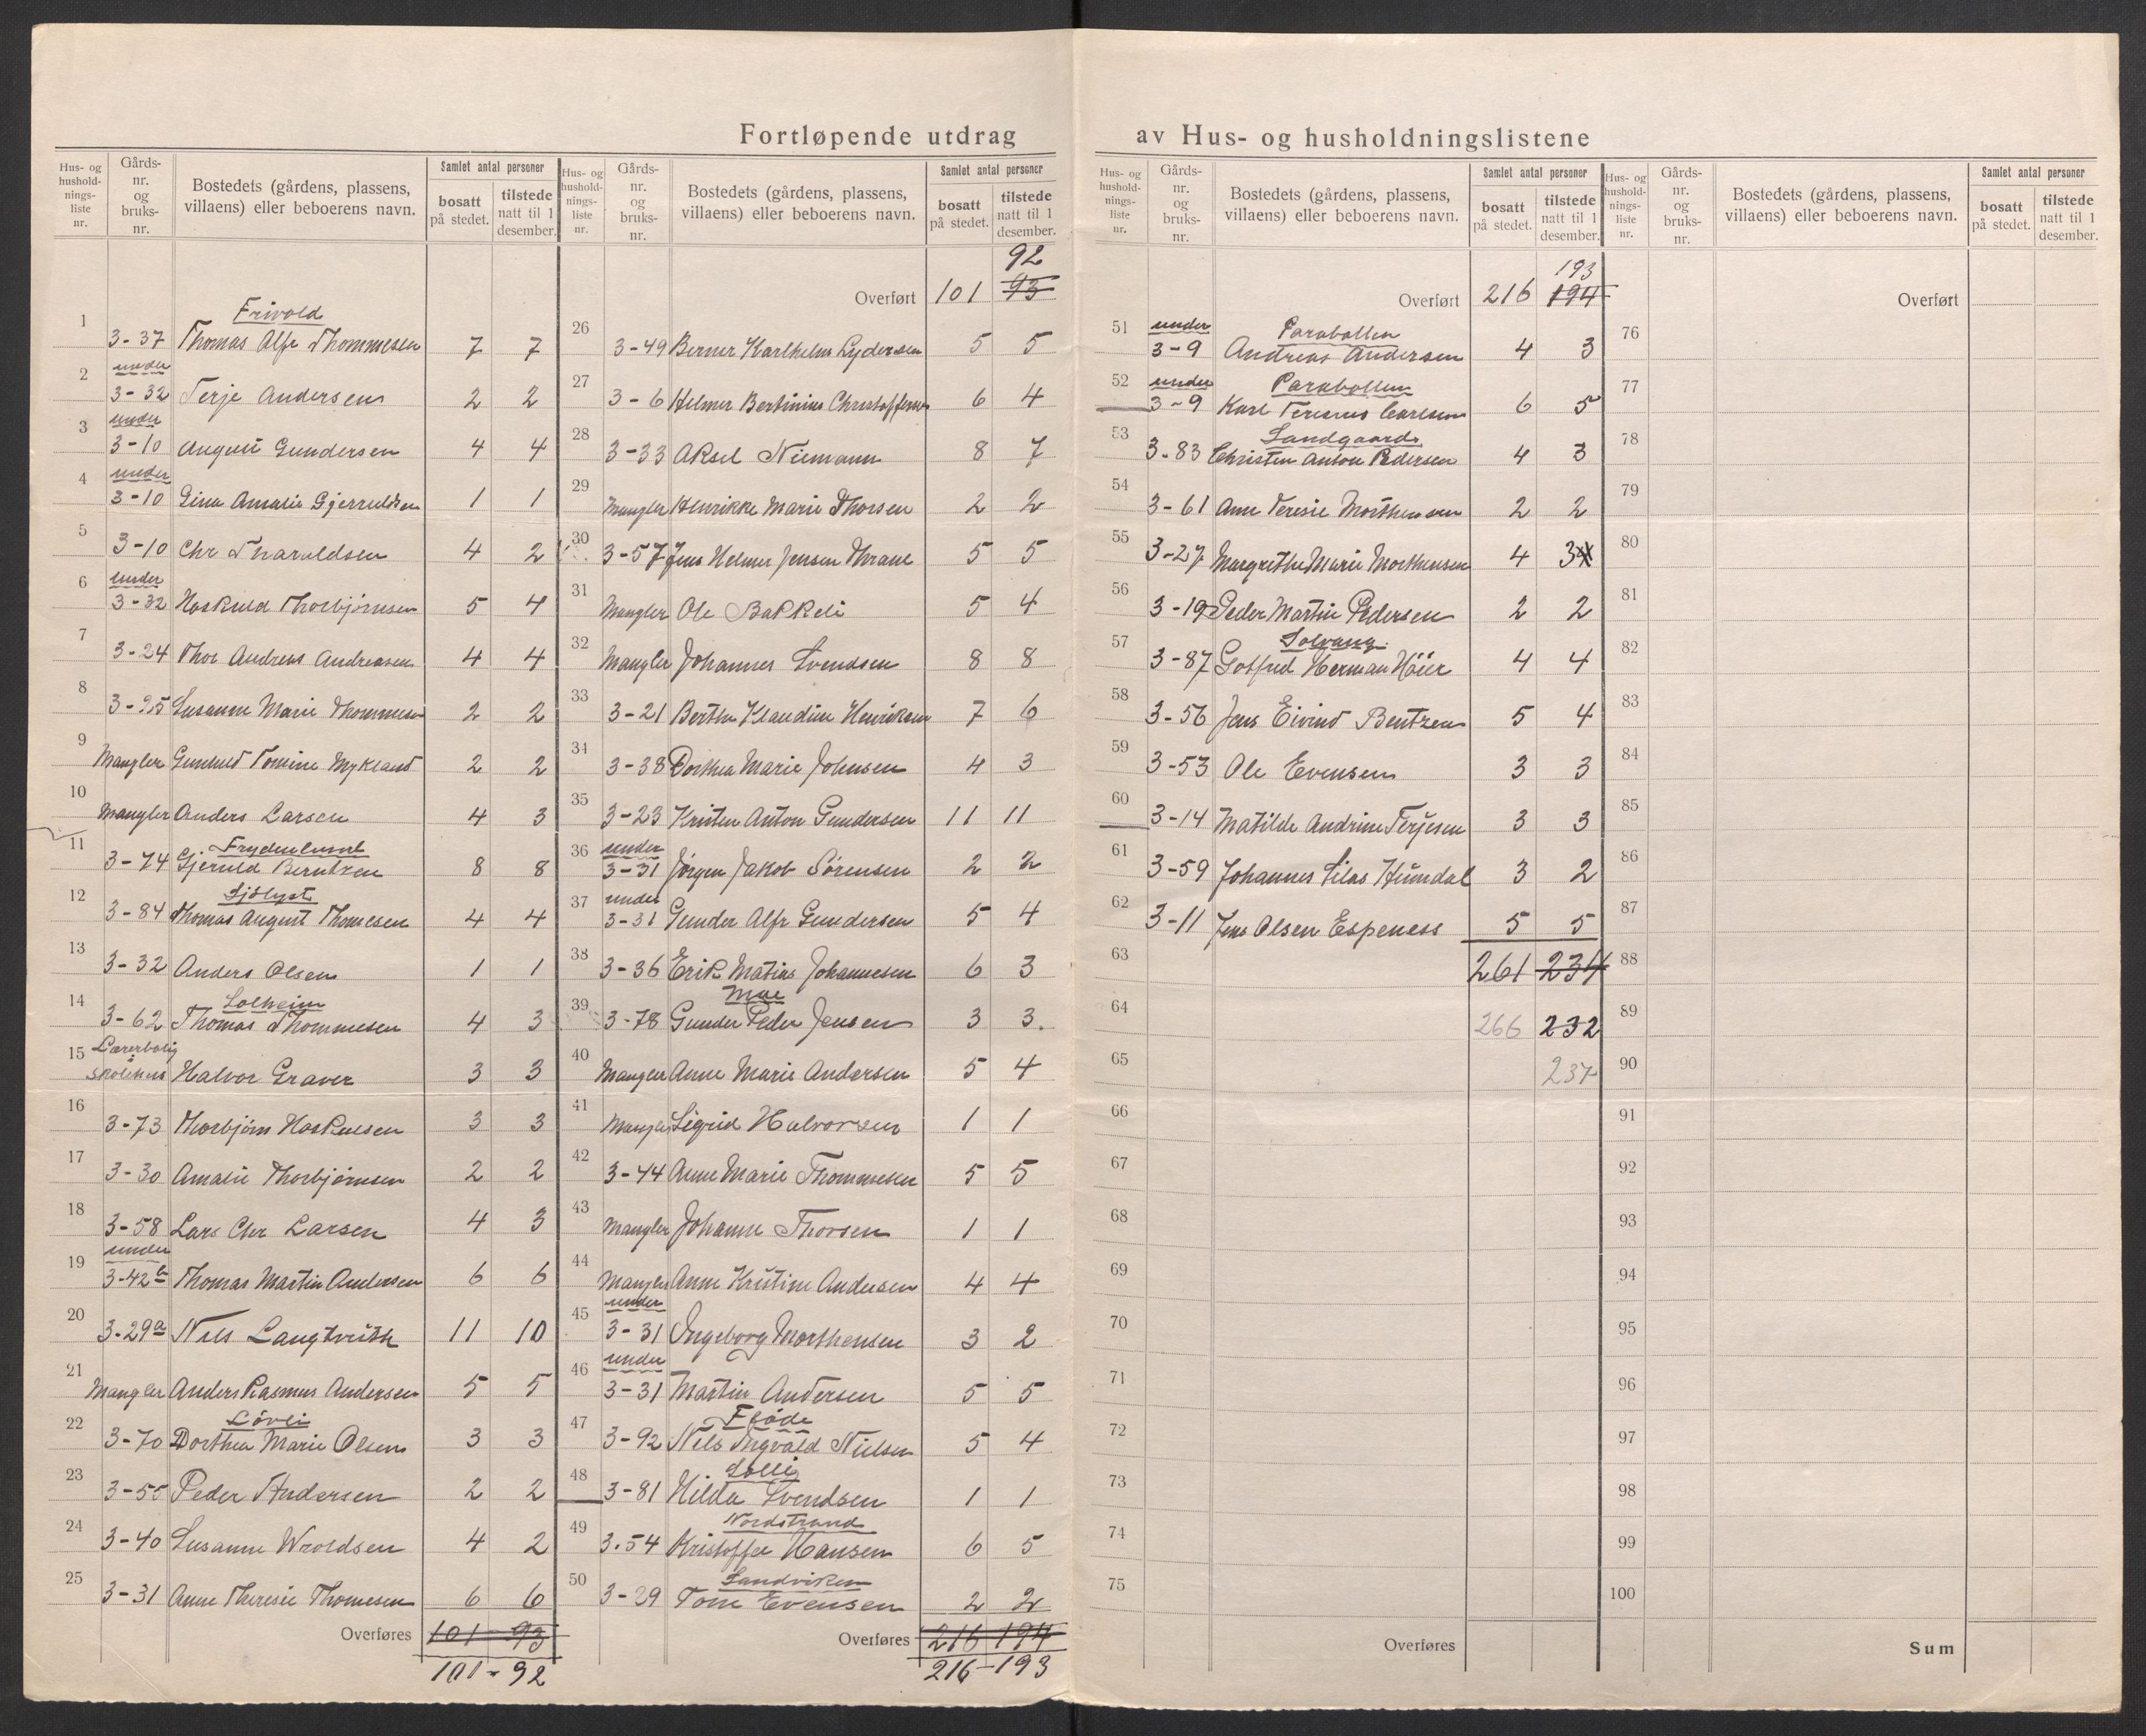 Fortløpende utdrag av Hus- og husholdningslistene
Hus- og hushold-nings-liste nr.
Gårds-nr. og bruks-nr.
Bostedets (gårdens, plassens, villaens) eller beboerens navn.
Samlet antal personer
bosatt på stedet.
tilstede natt til 1 desember.
1 3-37 Frivold Thomas Alfr Thommesen 7 7
2 under 3-32 Terje Andersen 2 2
3 under 3-10 August Gundersen 4 4
4 under 3-10 Gina Amalie Gjerruldsen 1 1
5 3-10 Chr Tharaldsen 4 2
6 under 3-32 Hoskuld Thorbjörnsen 5 4
7 3-24 Thor Andreas Andreasen 4 4
8 3-25 Susanne Marie Thommesen 2 2
9 Mangler Gunhild Tomine Mykland 2 2
10 Mangler Anders Larsen 4 3
11 3-74 Frydenlund Gjeruld Berntzen 8 8
12 3-84 Sjölyst Thomas August Thomesen 4 4
13 3-32 Anders Olsen 1 1
14 3-62 Solheim Thomas Thommesen 4 3
15 Lærerbolig Skolehus Halvor Graver 3 3
16 3-73 Thorbjörn Hoskulsen 3 3
17 3-30 Amalie Thorbjörnsen 2 2
18 3-58 Lars Chr Larsen 4 3
19 under 3-42 b Thomas Martin Andersen 6 6
20 3-29 a Nils Langtvith 11 10
21 Mangler Anders Rasmus Andersen 5 5
22 3-70 Lövli Dorthea Marie Olsen 3 3
23 3-55 Peder Andersen 2 2
24 3-40 Susanne Wroldsen 4 2
25 3-31 Anne Theresie Thomesen 6 6
Overføres 101-93
101-92
Hus- og hushold-nings-liste nr.
Gårds-nr. og bruks-nr.
Bostedets (gårdens, plassens, villaens) eller beboerens navn.
Samlet antal personer
bosatt på stedet.
tilstede natt til 1 desember.
92
Overført 101 93
26 3-49 Berner Karlhelm Lydersen 5 5
27 3-6 Helmer Bertinius Christoffersen 6 4
28 3-33 Aksel Niemann 8 7
29 Mangler Henrikke Marie Thorsen 2 2
30 3-57 Jens Helmer Jensen Thrane 5 5
31 Mangler Ole Bakkeli 5 4
32 Mangler Johannes Svendsen 8 8
33 3-21 Berthe Klaudine Henriksen 7 6
34 3-38 Dorthea Marie Johnsen 4 3
35 3-23 Kristen Anton Gundersen 11 11
36 under 3-31 Jørgen Jakob Sörensen 2 2
37 under 3-31 Gunder Alfr Gundersen 5 4
38 3-36 Erik Matias Johannesen 6 3
39 3-78 Moe Gunder Peder Jensen 3 3.
40 Mangler Anne Marie Andersen 5 4
41 Mangler Sigrid Halvorsen 1 1
42 3-44 Anne Marie Thommesen 5 5
43 Mangler Johanne Thorsen 1 1
44 Mangler Anne Kristine Andersen 4 4
45 under 3-31 Ingeborg Morthensen 3 2
46 under 3-31 Martin Andersen 5 5
47 3-92 Nils Ingvald Nielsen 5 4
48 3-81 Solli Hilda Svendsen 1 1
49 3.54 Nordstrand Kristoffer Hansen 6 5
50 3-29 Sandviken Tom Evensen 2 2
Overføres 216 194
216-193
Hus- og hushold-nings-liste nr.
Gårds-nr. og bruks-nr.
Bostedets (gårdens, plassens, villaens) eller beboerens navn.
Samlet antal personer
bosatt på stedet.
tilstede natt til 1 desember.
193
Overført 216 194
51 under 3-9 Parabollen Andreas Andersen 4 3
52 under 3-9 Parabollen Karl Teresius Carlsen 6 5
53 3.83 Sandgaard Christen Anton Pedersen 4 3
54 3-61 Anne Teresie Morthensen 2 2
55 3-27 Margrethe Marie Morthensen 4 3 4
56 3-19 Peder Martin Pedersen 2 2
57 3-87 Solvang. Gotfred Herman Höier 4 4
58 3-56 Jens Eivind Bentzen 5 4
59 3-53 Ole Evensen 3 3
60 3-14 Matilde Andrine Terjesen 3 3
61 3-59 Johannes Silas Humdal 3 2
62 3-11 Jens Olsen Espeness 5 5
63 261 234
64 266 232
65 237
66
67
68
69
70
71
72
73
74
75
Overføres
Hus- og hushold-nings-liste nr.
Gårds-nr. og bruks-nr.
Bostedets (gårdens, plassens, villaens) eller beboerens navn.
Samlet antal personer
bosatt på stedet.
tilstede natt til 1 desember.
Overført
76
77
78
79
80
81
82
83
84
85
86
87
88
89
90
91
92
93
94
95
96
97
98
99
100
Sum